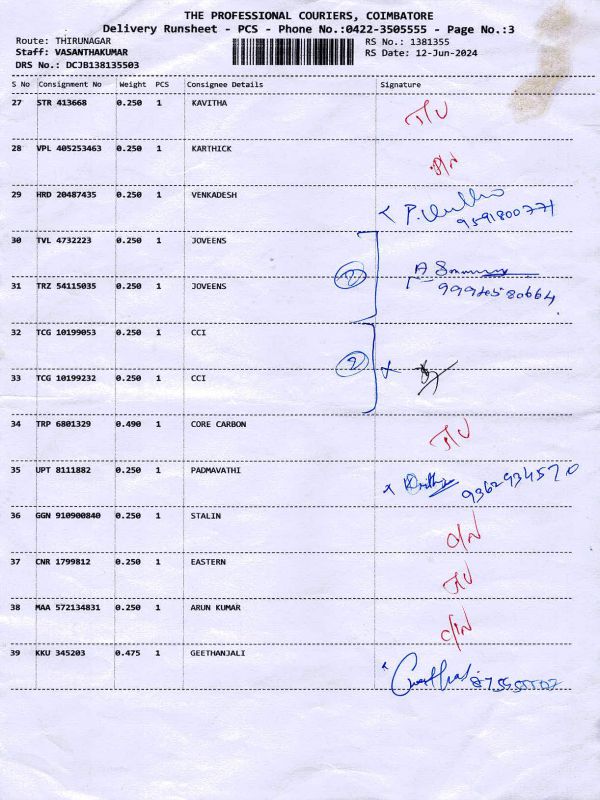 THE PROFESSIONAL COURIERS, COIMBATORE
Delivery Runsheet - PCS - Phone No.:0422-3505555 - Page No.:3
Route: THIRUNAGAR RS No.: 1381355
Staff: VASANTHAKUMAR RS Date: 12-Jun-2024
DRS No.: DCJB138135503
S No Consignment No Weight PCS Consignee Details Signature
27 STR 413668 0.250 1 KAVITHA
28 VPL 405253463 0.250 1 KARTHICK
29 HRD 20487435 0.250 1 VENKADESH
9591800771
30 TVL 4732223 0.250 1 JOVEENS
2
31 TRZ 54115035 0.250 1 JOVEENS
32 TCG 10199053 0.250 1 CCI
2
33 TCG 10199232 0.250 1 CCI
34 TRP 6801329 0.490 1 CORE CARBON
35 UPT 8111882 0.250 1 PADMAVATHI
9362934570
36 GGN 910900840 0.250 1 STALIN
37 CNR 1799812 0.250 1 EASTERN
38 MAA 572134831 0.250 1 ARUN KUMAR
39 KKU 345203 0.475 1 GEETHANJALI